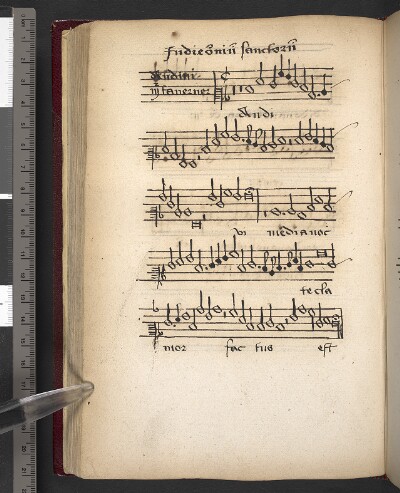 In die o̅niu̅ sanctoru̅
Audivi
mʳ taverner
Audi
vi media noc
te cla
mor fac tus est